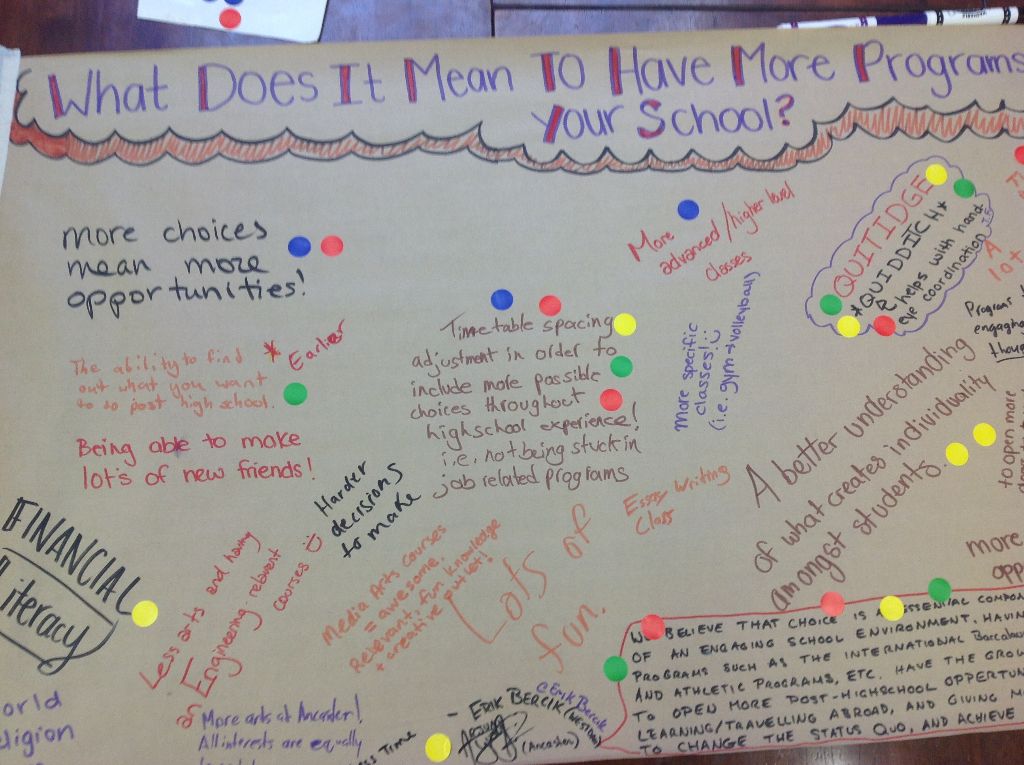 What Does It Mean To Have More Programs
Your School?
more choices
mean more
opportunities!
More
advanced/higher level
classes
QUITIDGE
*QUIDDITCH*
helps with hand-
eye coordination
The ability to find
out what you want
to do post high school.
* Earlier
Being able to make
lots of new friends!
Time table spacing
adjustment in order to
include more possible
choices throughout
highschool experience!
i.e. not being stuck in
job related programs
More specific
classes!
(i.e. gym → volleyball)
A better understanding
of what creates individuality
amongst students.
to open more
Harder
decisions
to make
Essay Writing
Class
FINANCIAL
Literacy
Less arts and having
Engineering relevent
courses
Media Arts Courses
= awesome.
Relevant, fun knowledge
+ creative outlet!
Lots of
fun.
more
opp
WE BELIEVE THAT CHOICE IS A
OF AN ENGAGING SCHOOL ENVIRONMENT. HAVIN
PROGRAMS SUCH AS THE INTERNATIONAL
AND ATHLETIC PROGRAMS, ETC. HAVE THE
TO OPEN MORE POST-HIGHSCHOOL
LEARNING/TRAVELLING ABROAD, AND GIVING
TO CHANGE THE STATUS QUO, AND ACHIEVE
- ERIK BERCIK (WESTDALE)
@Erik Bercik
(Ancaster)
orld
eligion
More arts at Ancaster!
All interests are equally
Time